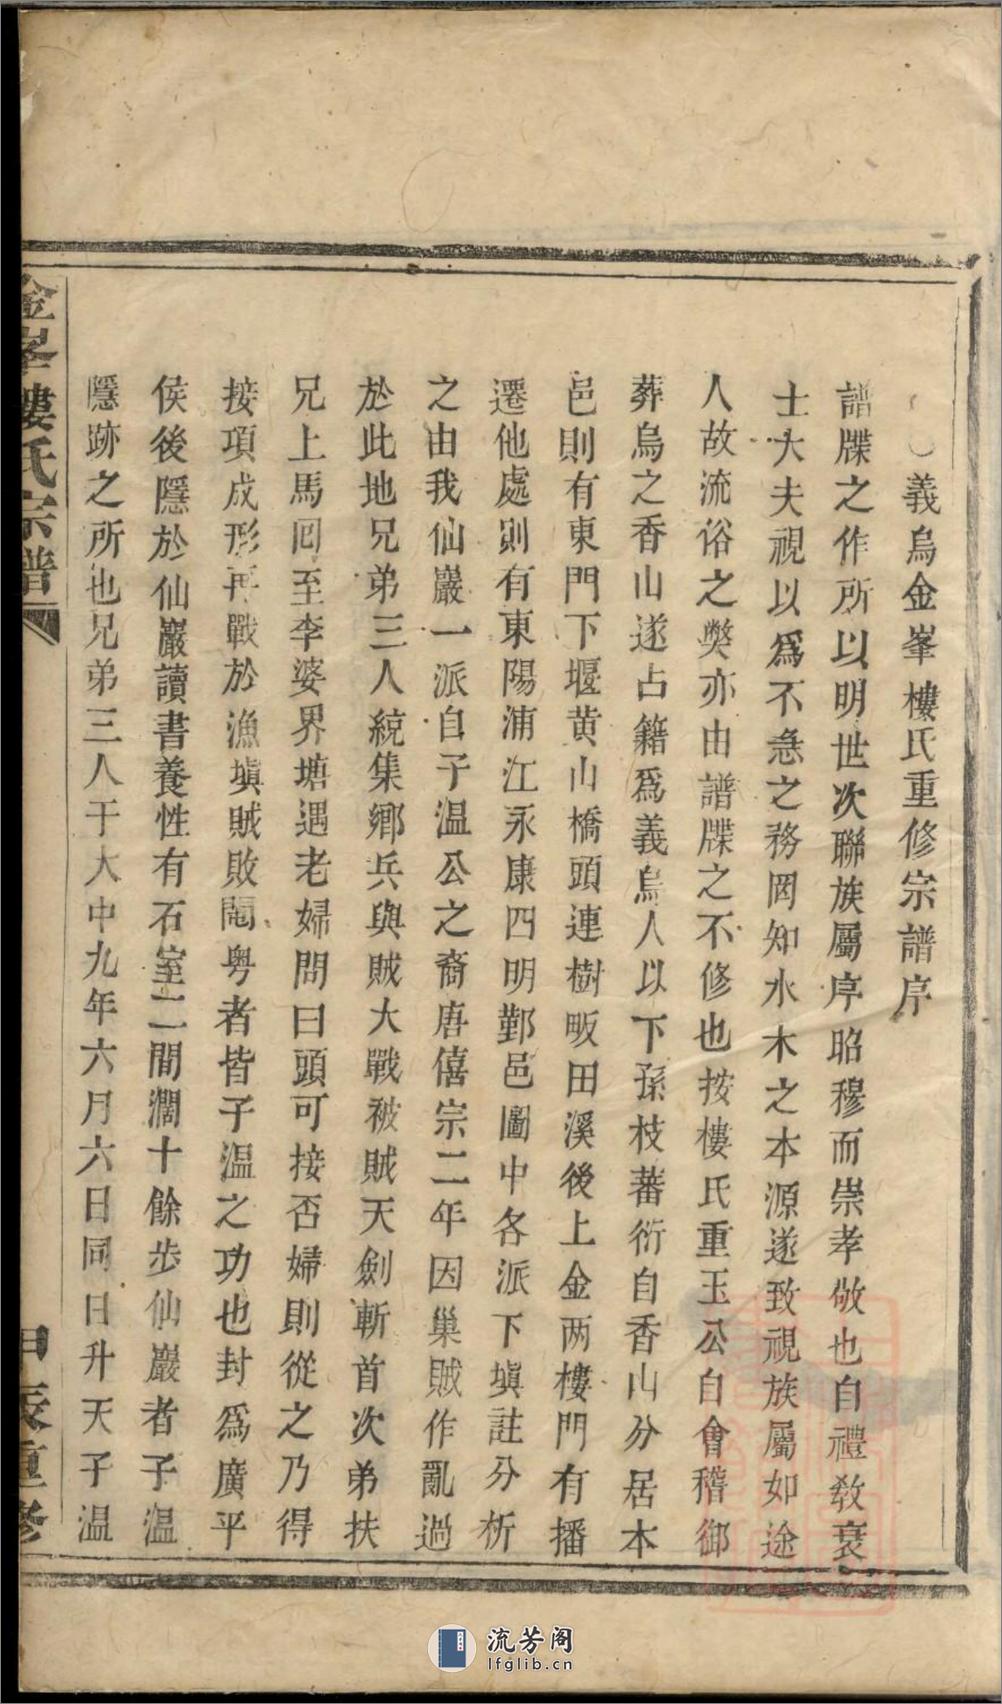 義烏金峯樓氏重修宗譜序
譜牒之作所以明世次聯族屬序昭穆而崇孝敬也自禮教衰
士大夫視以爲不急之務罔知水木之本源遂致視族屬如途
人故流俗之獘亦由譜牒之不修也按樓氏重玉公自會稽御
葬烏之香山遂占籍爲義烏人以下孫枝蕃衍自香山分居本
邑則有東門下堰黄山橋頭連樹畈田溪後上金两樓門有播
遷他處則有東陽浦江永康四明鄞邑圖中各派下塡註分析
之由我仙巖一派自子温公之裔唐僖宗二年因巢賊作亂過
於此地兄弟三人統集鄉兵與賊大戰被賊天劍斬首次弟扶
兄上馬囘至李婆界塘遇老婦問曰頭可接否婦則從之乃得
接項成形再戰於漁塡賊敗閩粤者皆子温之功也封爲廣平
侯後隱於仙巖讀書養性有石室二間濶十餘步仙巖者子温
隱跡之所也兄弟三人于大中九年六月六日同日升天子温
金峯樓氏宗譜
甲辰重修
流芳阁
lfglib.cn